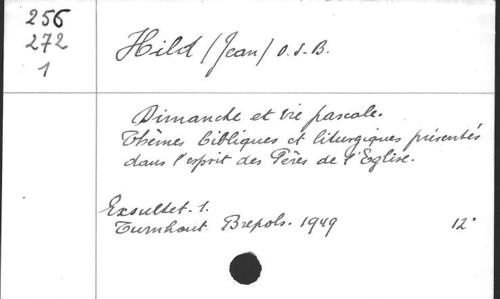 256
272
1
Hild (Jean) O.S.B.
Dimanche et vie pascale.
Thèmes bibliques et liturgiques présentés
dans l'esprit des Pères de l'Eglise.
Exsultet. 1.
Turnhout Brepols. 1949 12°